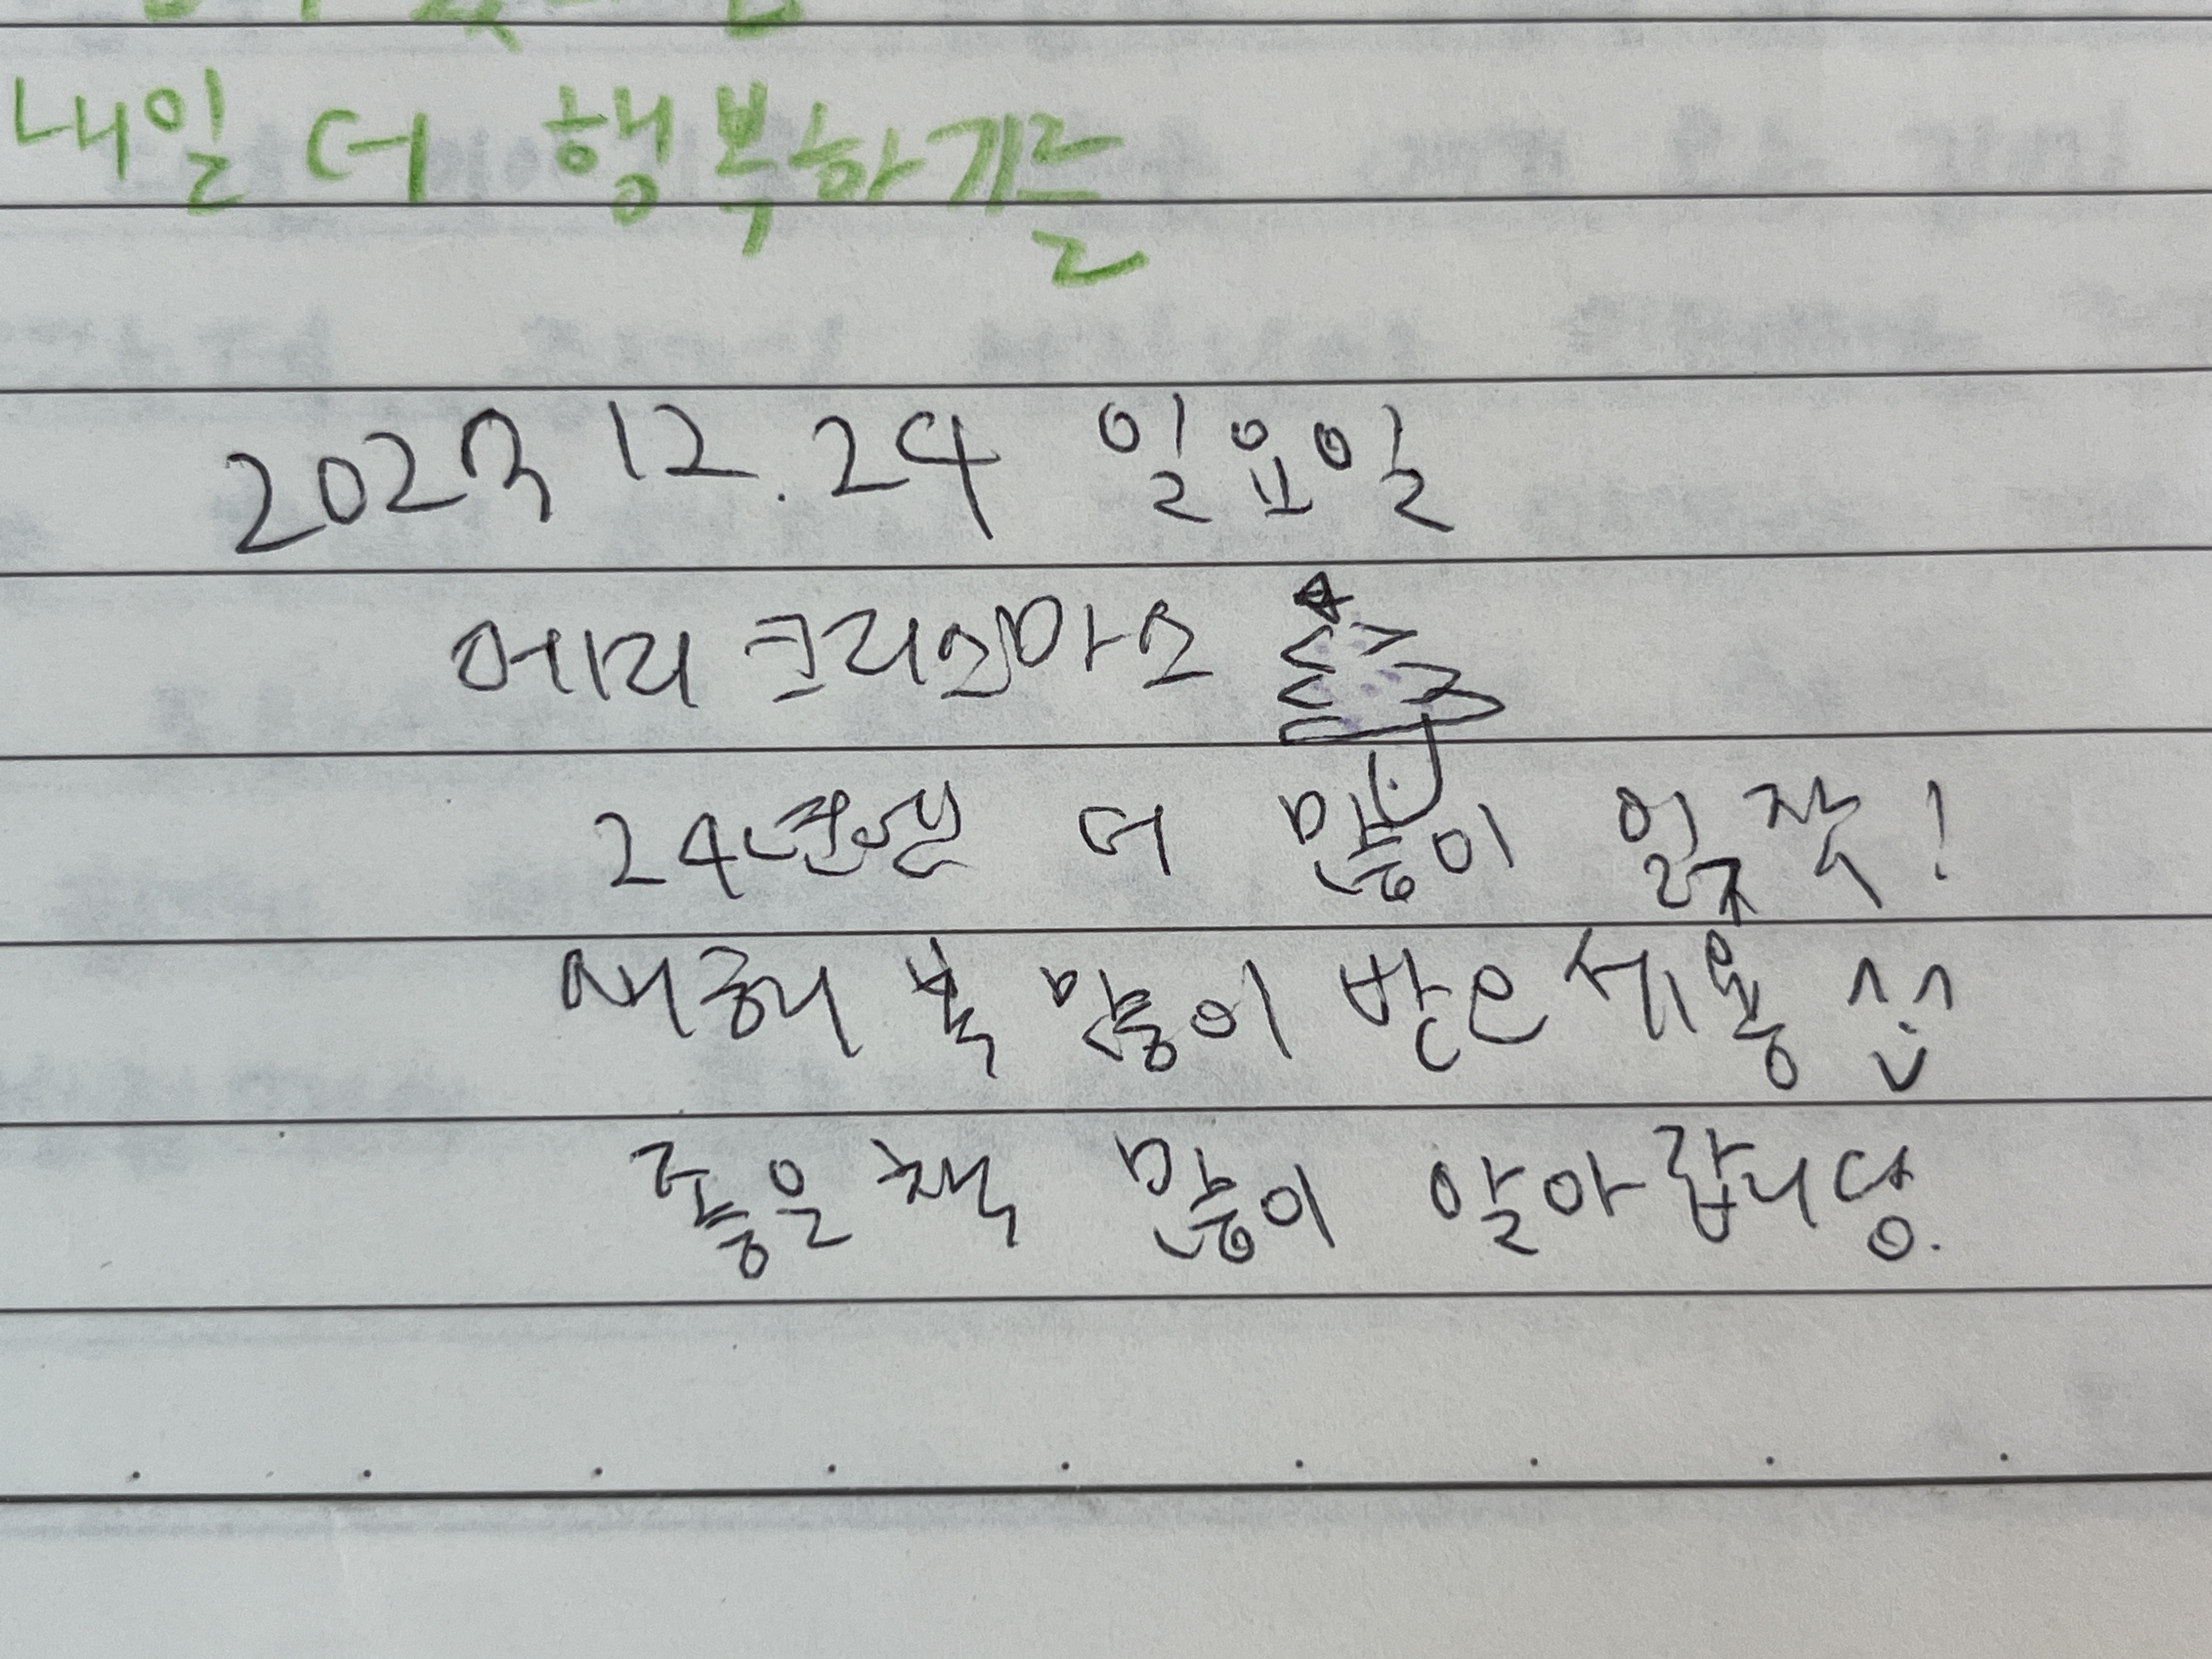 내일 더 행복하기를
2023 12.24 일요일
메리 크리스마스
24년엔 더 많이 읽자!
새해 복 많이 받으세용 ^^
좋은 책 많이 알아갑니당.